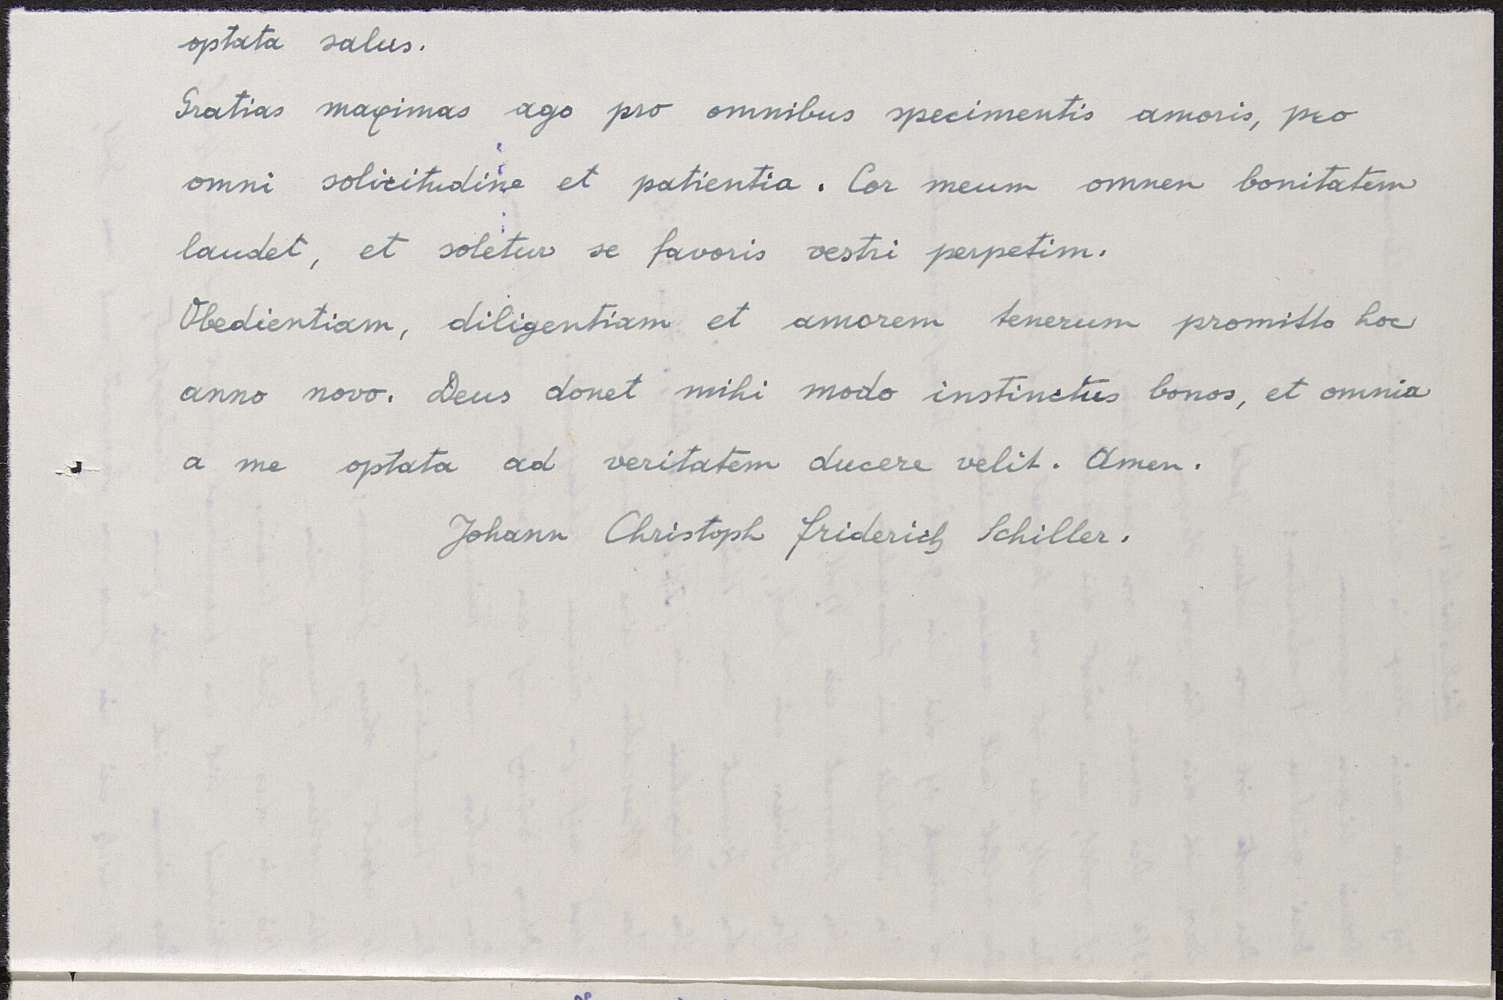 optata salus.
Gratias maximas ago pro omnibus specimentis amoris, pro
omni solicitudine et patientia. Cor meum omnen bonitatem
laudet, et soletur se favoris vestri perpetim.
Obedientiam, diligentiam et amorem tenerum promitto hoc
anno novo. Deus donet mihi modo instinctus bonos, et omnia
a me optata ad veritatem ducere velit. Amen.
Johann Christoph Friderich Schiller.